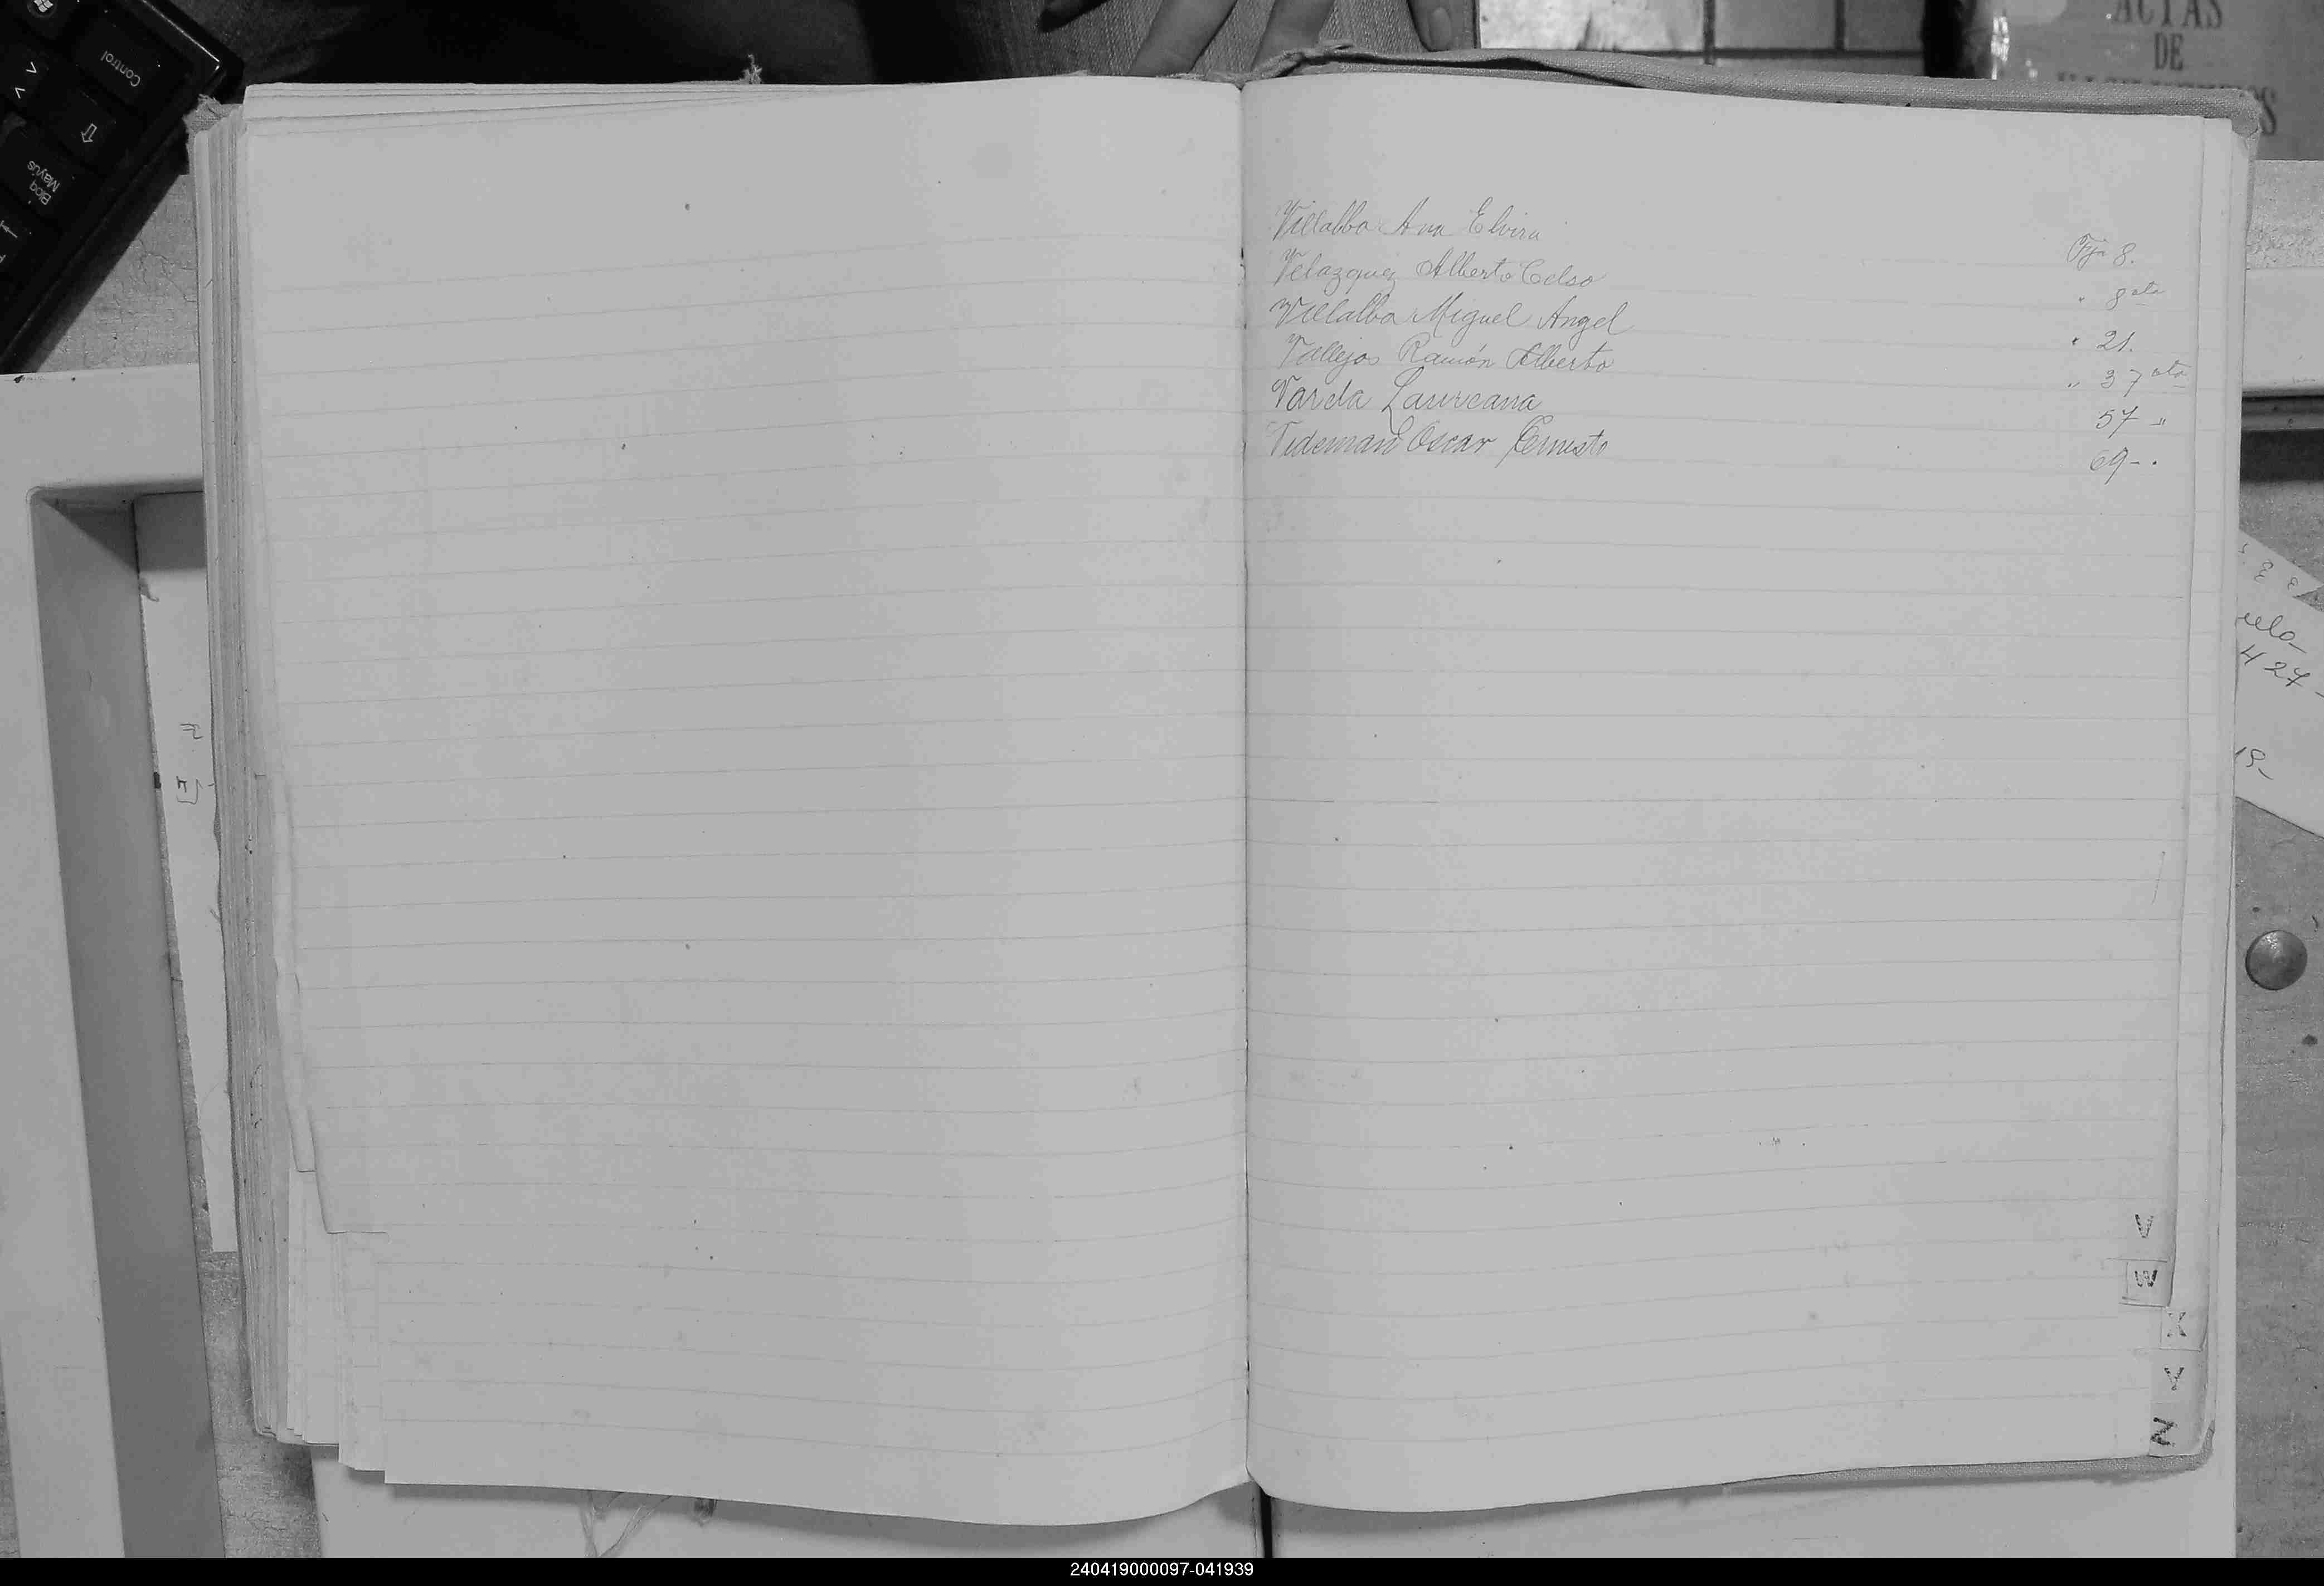 Control
Bloq
Mayús
ACTAS
DE
Villalba Ana Elvira Fj. 8.
Velazquez Alberto Celso " 8 vta
Villalba Miguel Angel " 21.
Vallejos Ramón Alberto " 37 vta
Varela Laureana 57 "
Videman Oscar Ernesto 69 - .
427-
V
W
X
Y
Z
240419000097-041939